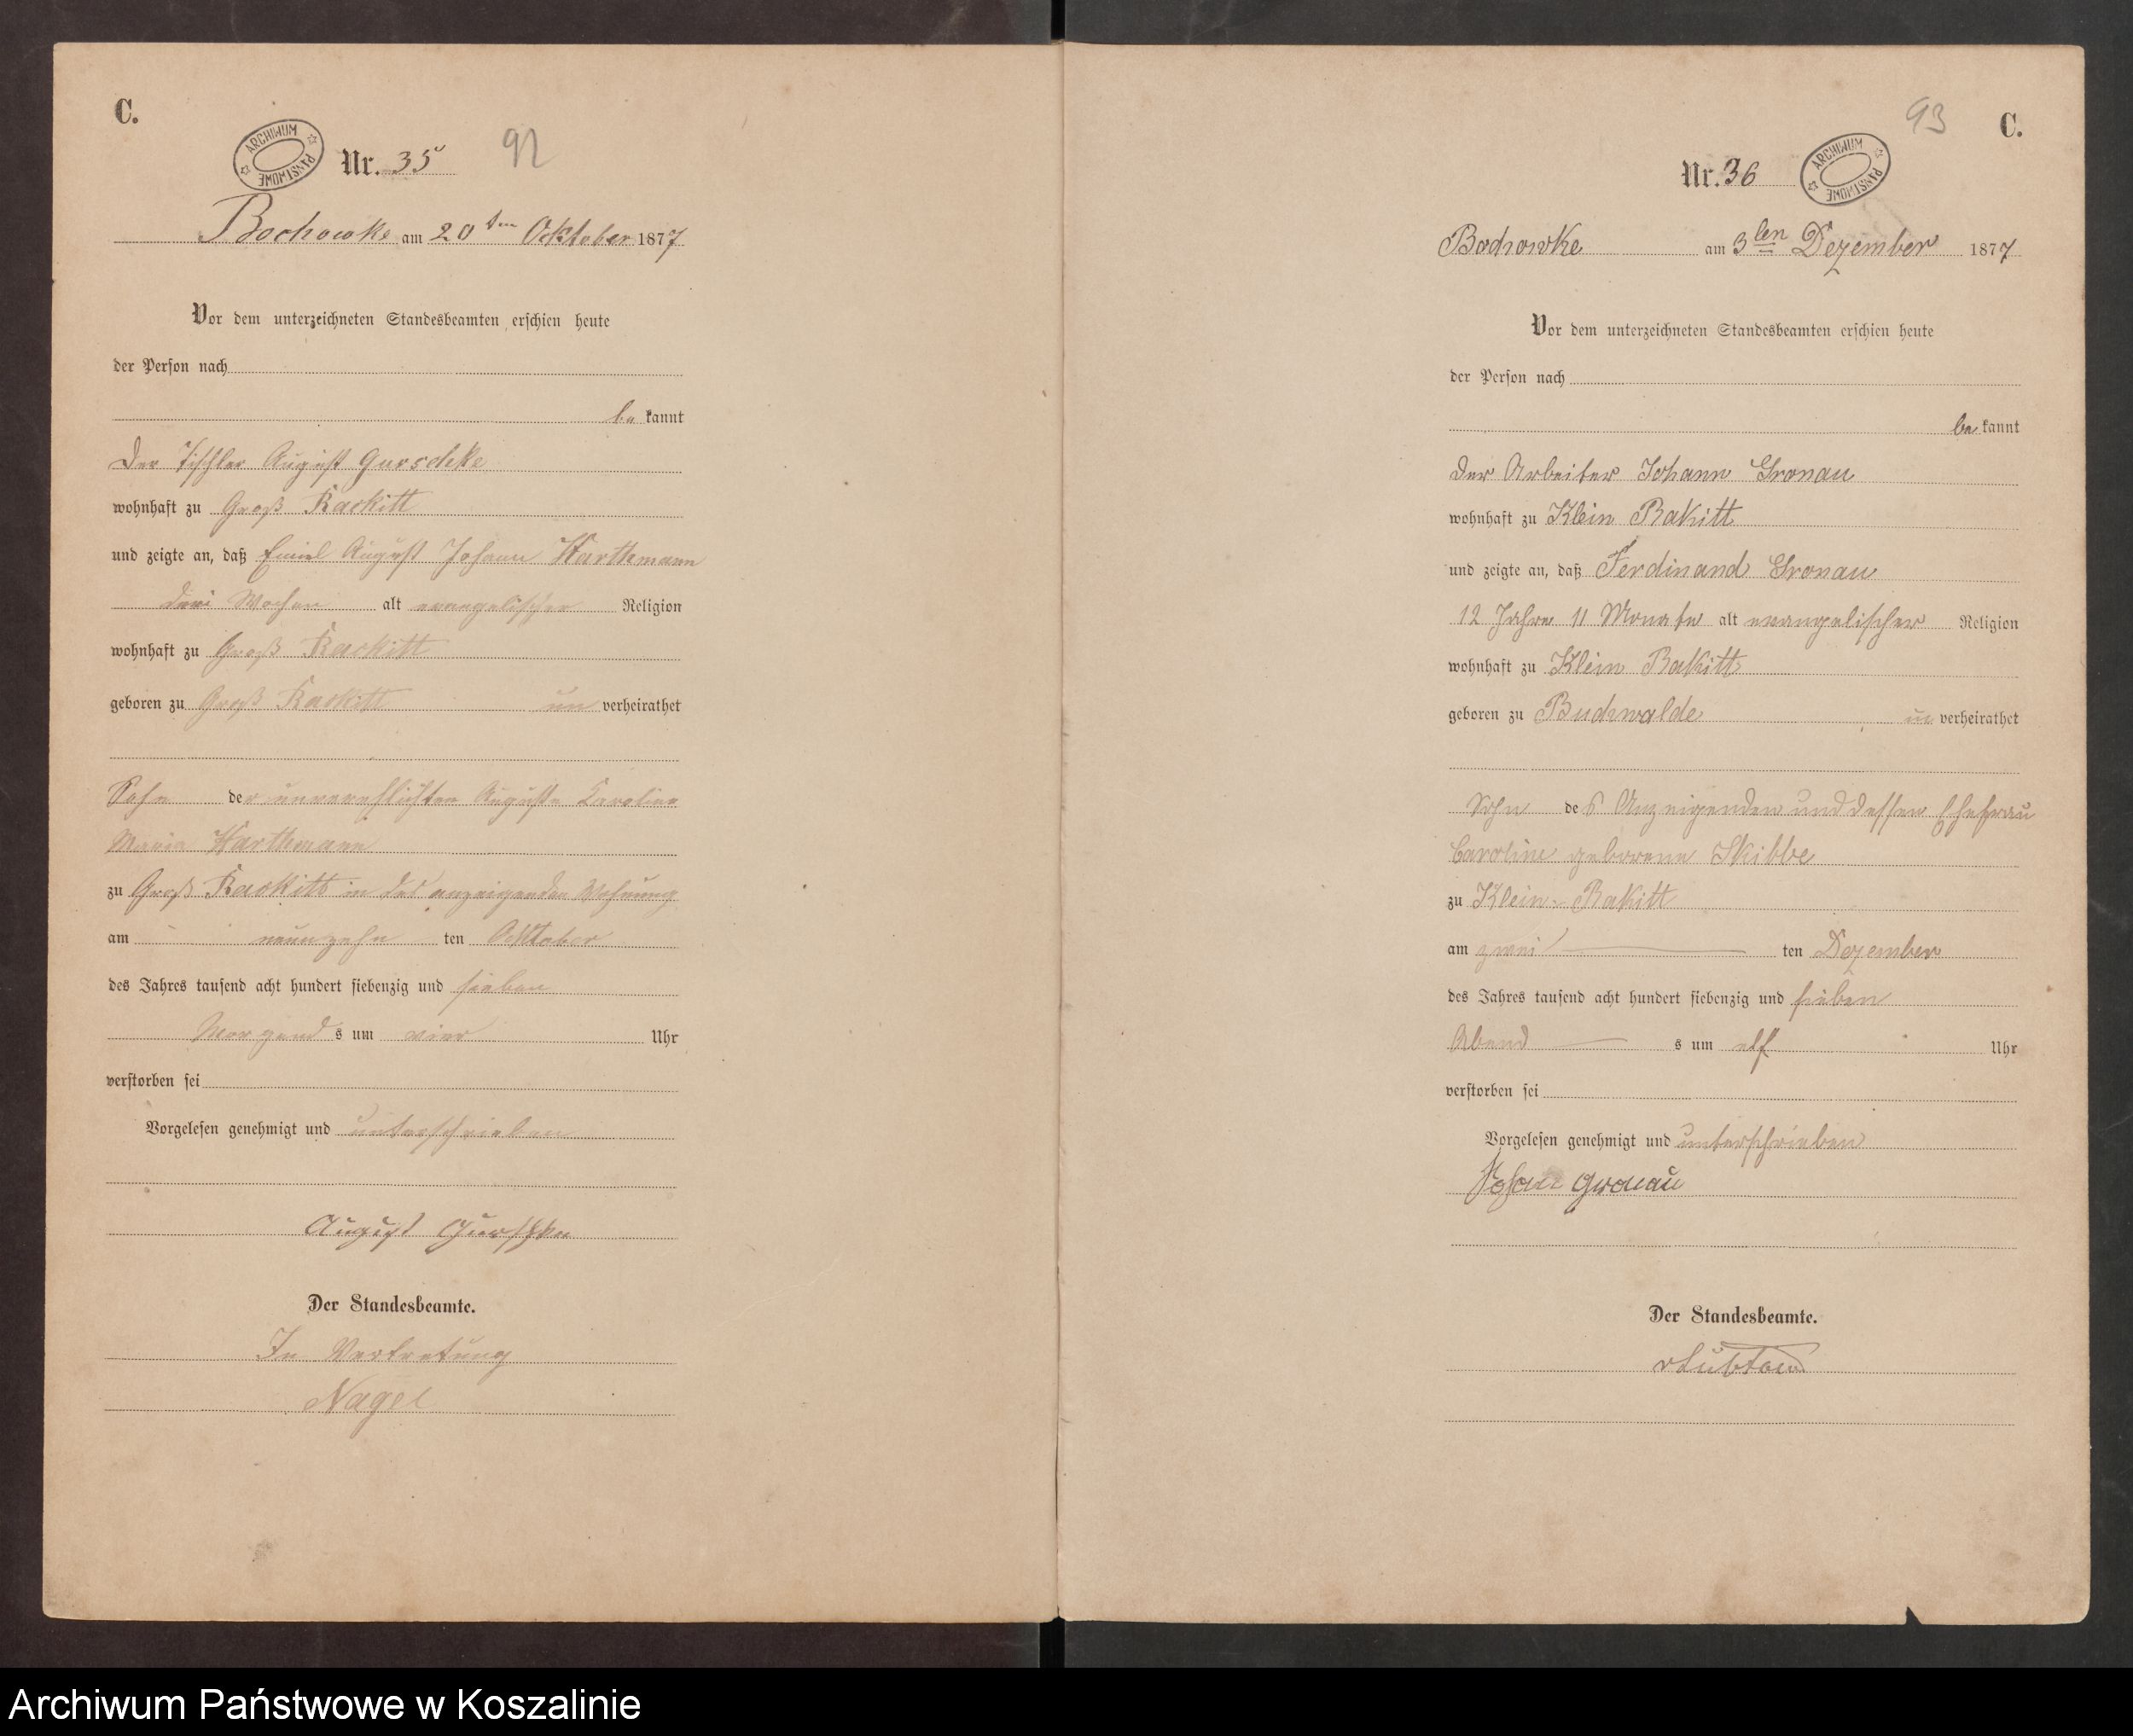 C.
ARCHIWUM PAŃSTWOWE
Nr. 35
92
Bochowke am 20ten Oktober 1877
Vor dem unterzeichneten Standesbeamten erschien heute
der Person nach
be kannt
Der Tischler August Gurschke
wohnhaft zu Groß Rackitt
und zeigte an, daß Emiel August Johann Harthmann
drei Wochen alt evangelischer Religion
wohnhaft zu Groß Rackitt
geboren zu Groß Rackitt un verheirathet
Sohn der unverehlichten Auguste Karoline
Maria Harthmann
zu Groß Rackitt in des anzeigenden Wohnung
am neunzehn ten Oktober
des Jahres tausend acht hundert siebenzig und sieben
Morgend s um vier Uhr
verstorben sei
Vorgelesen genehmigt und unterschrieben
August Gurschke
Der Standesbeamte.
In Vertretung
Nagel
93
C.
Nr. 36
ARCHIWUM PAŃSTWOWE
Bochowke am 3ten Dezember 1877
Vor dem unterzeichneten Standesbeamten erschien heute
der Person nach
be kannt
der Arbeiter Johann Gronau
wohnhaft zu Klein Rakitt
und zeigte an, daß Ferdinand Gronau
12 Jahre 11 Monate alt evangelischer Religion
wohnhaft zu Klein Rakitt
geboren zu Buchwalde un verheirathet
Sohn des Anzeigenden und dessen Ehefrau
Caroline geborene Skibbe
zu Klein-Rakitt
am zwei ten Dezember
des Jahres tausend acht hundert siebenzig und sieben
Abend s um elf Uhr
verstorben sei
Vorgelesen genehmigt und unterschrieben
Johann Gronau
Der Standesbeamte.
Archiwum Państwowe w Koszalinie